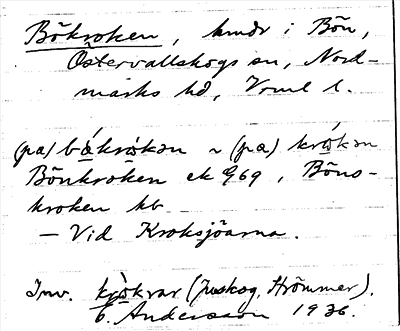 Bökroken, hmdr i Bön,
Östervallskogs sn, Nord-
marks hd, Vrml l.
(pa) bǽkrókən ~ (pa) krókən
Bönkroken ek G69, Böns-
kroken kb
— Vid Kroksjöarna.
Inv. krókrar (Juskog, Strömmer).
E. Andersson 1936.